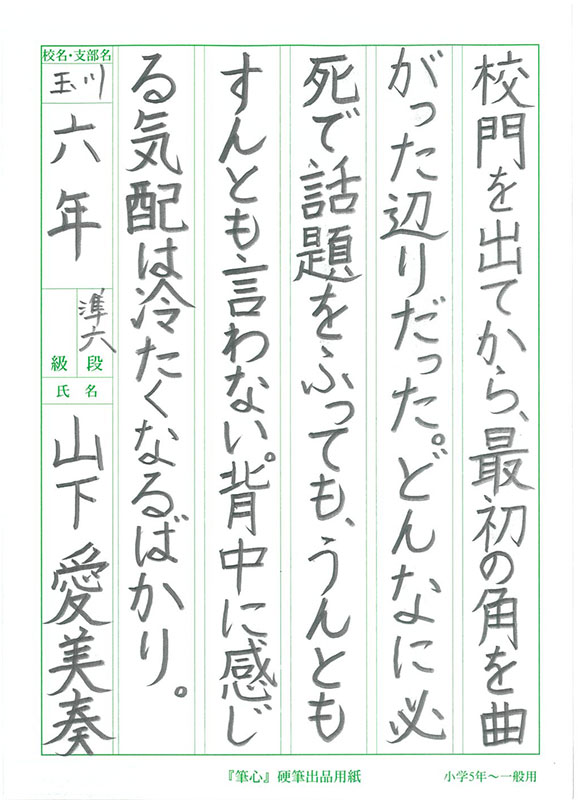 校門を出てから、最初の角を曲
がった辺りだった。どんなに必
死で話題をふっても、うんとも
すんとも言わない。背中に感じ
る気配は冷たくなるばかり。
校名・支部名
玉川
六年
準六
級 段
氏名
山下愛美奏
『筆心』硬筆出品用紙
小学5年〜一般用